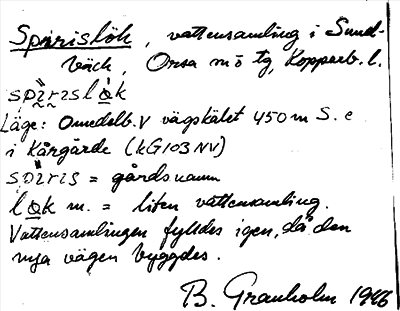 Spirislök, vattensamling i Sund-
bäck, Orsa m o tg, Kopparb. l.
spìrɪslọ̀k
Läge: Omedelb. V vägskälet 450 m S. e
i Kårgärde (kG103NV)
spìrɪs = gårdsnamn
lọk m. = liten vattensamling.
Vattensamlingen fylldes igen, då den
nya vägen byggdes.
B. Granholm 1946